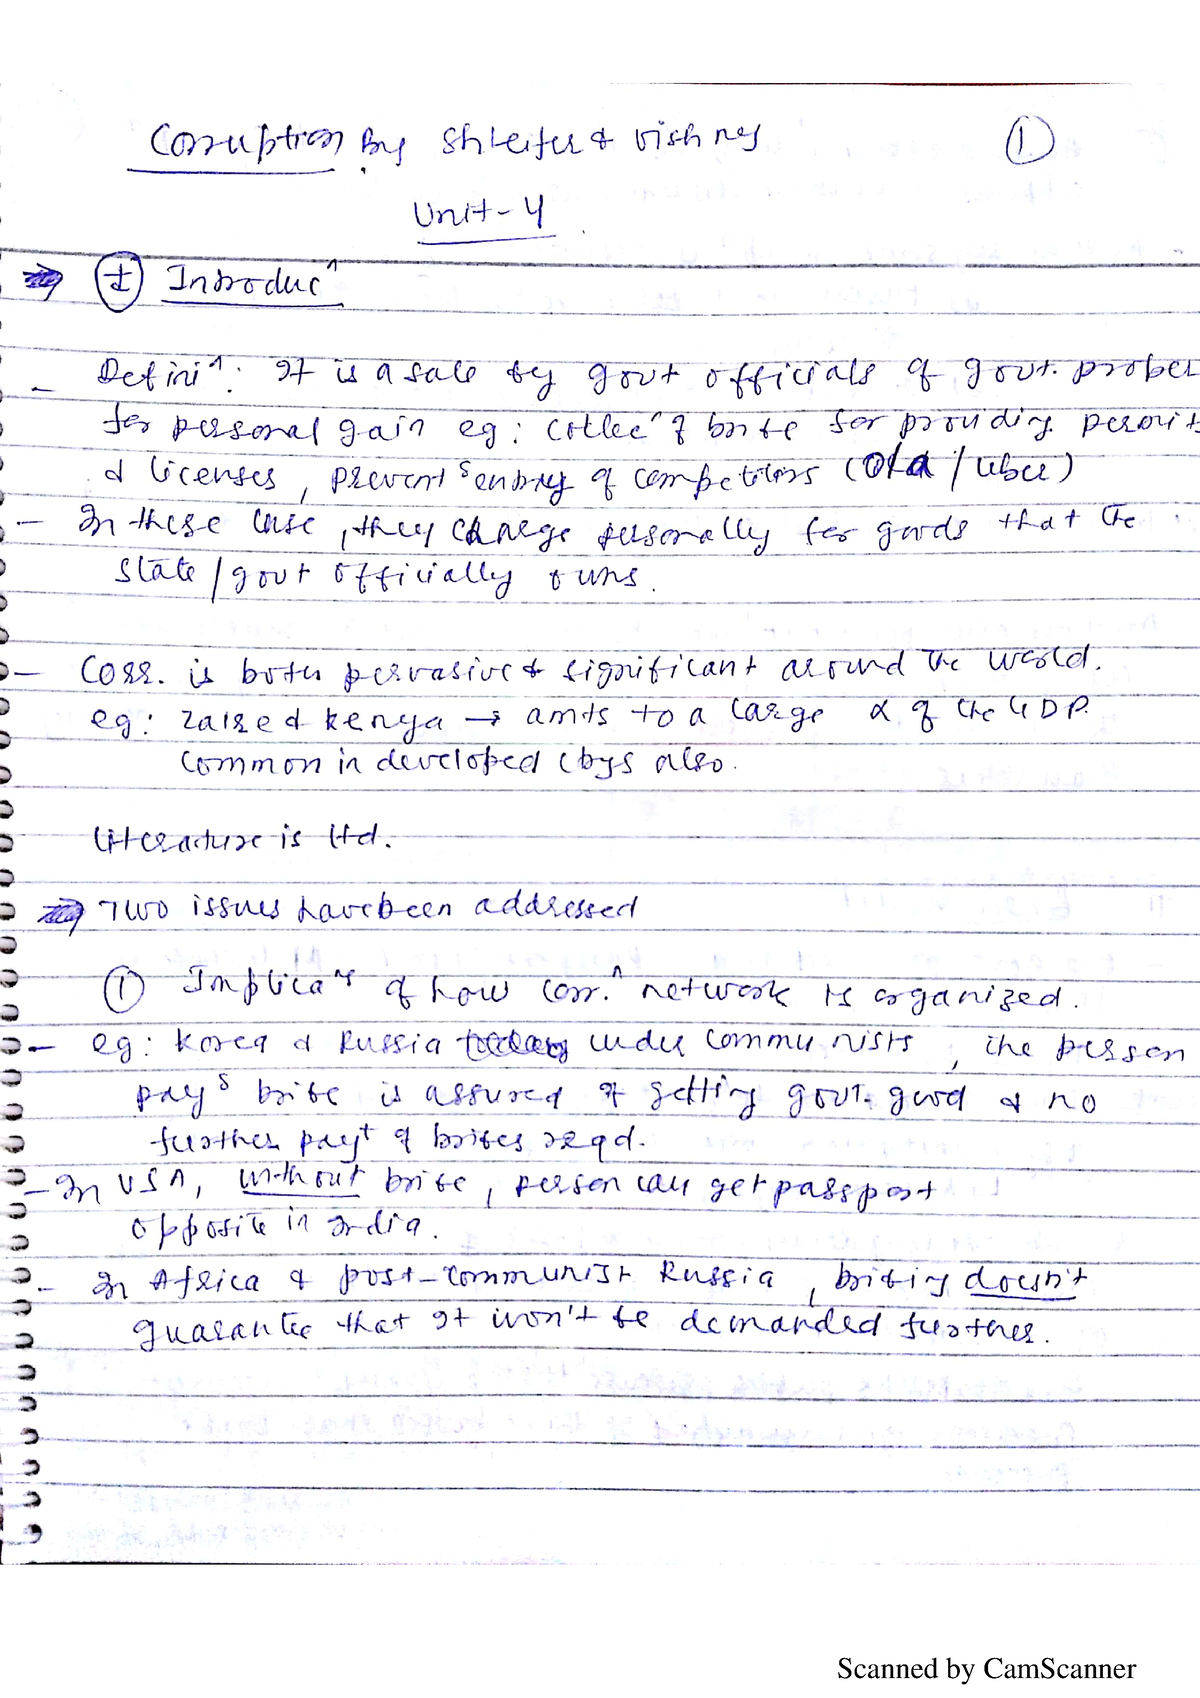 Corruption By Shleifer & Vishney
①
Unit-4
I Introduc^n
- Defini^n: It is a sale by govt officials of govt. proper
for personal gain eg: collec^n of bribe for providing permit
& licenses, prevent^s entry of competitors (Ola/Uber)
- In these case, they charge personally for goods that the
state/govt officially owns.
- Corr. is both pervasive & significant around the world.
eg: Zaire & Kenya → amts to a large of the GDP.
Common in developed also.
Literature is ltd.
Two issues have been addressed
① Implica^ns of how corr.^n network is organized.
- eg: Korea & Russia under communists, the person
pay^s bribe is assured of getting govt. good & no
further pay^t of bribes reqd.
- In USA, without bribe, person can get passport
opposite in India.
- In Africa & post-communist Russia, bribing doesn't
guarantee that it won't be demanded further.
Scanned by CamScanner